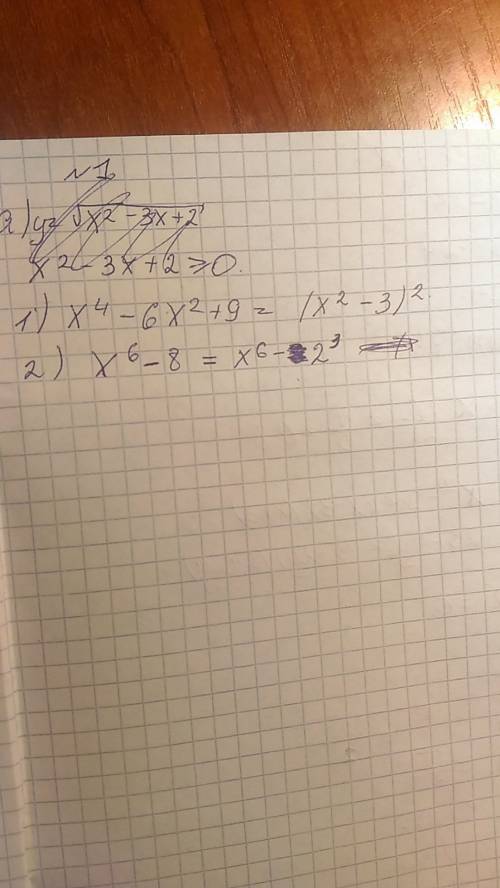 №1
а) y = √x² - 3x + 2
x² - 3x + 2 ≥ 0
1) x⁴ - 6x² + 9 = (x² - 3)²
2) x⁶ - 8 = x⁶ - 2³